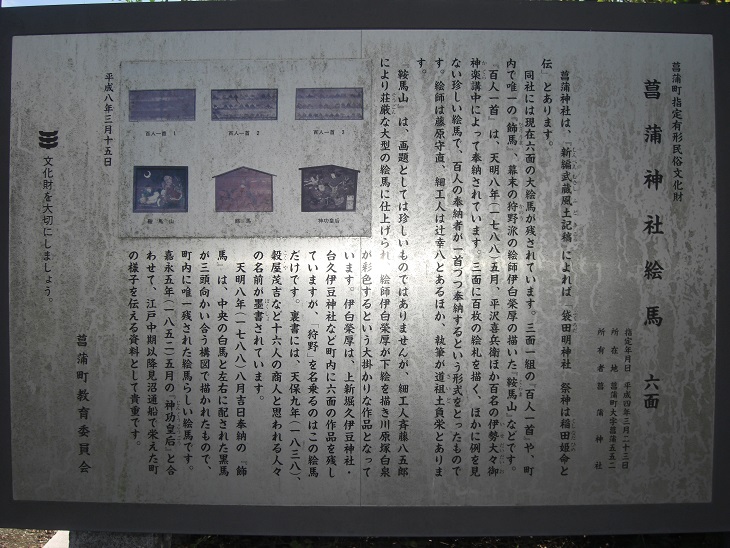 菖蒲町指定有形民俗文化財
菖蒲神社絵馬 六面
指定年月日 平成四年三月二十三日
所在地 菖蒲町大字菖蒲五五二
所有者 菖蒲神社
菖蒲神社は、『新編武蔵風土記稿』によれば「袋田明神社 祭神は稲田姫命と
伝」とあります。
同社には現在六面の大絵馬が残されています。三面一組の『百人一首』や、町
内で唯一の『飾馬』、幕末の狩野派の絵師伊白栄厚の描いた『鞍馬山』などです。
『百人一首』は、天明八年(一七八八)五月、平沢喜兵衛ほか百名の伊勢大々御
神楽講中によって奉納されています。三面に百枚の絵札を描く、ほかに例を見
ない珍しい絵馬で、百人の奉納者が一首づつ奉納するという形式をとったもので
す。絵師は藤原守直、細工人は辻幸八とあるほか、執筆が道祖土負栄とありま
す。
『鞍馬山』は、画題としては珍しいものではありませんが、細工人斉藤八五郎
により荘厳な大型の絵馬に仕上げられ、絵師伊白栄厚が下絵を描き川原塚白泉
が彩色するという大掛かりな作品となって
います。伊白栄厚は、上新堀久伊豆神社・
台久伊豆神社など町内に六面の作品を残し
ていますが、「狩野」を名乗るのはこの絵馬
だけです。裏書には、天保九年(一八三八)、
穀屋茂吉など十六人の商人と思われる人々
の名前が墨書されています。
天明八年(一七八八)八月吉日奉納の『飾
馬』は、中央の白馬と左右に配された黒馬
が三頭向かい合う構図で描かれたもので、
町内に唯一残された絵馬らしい絵馬です。
嘉永五年(一八五二)五月の『神功皇后』と合
わせて、江戸中期以降見沼通船で栄えた町
の様子を伝える資料として貴重です。
菖蒲町教育委員会
百人一首 1
百人一首 2
百人一首 3
鞍馬山
飾馬
神功皇后
平成八年三月十五日
文化財を大切にしましょう。